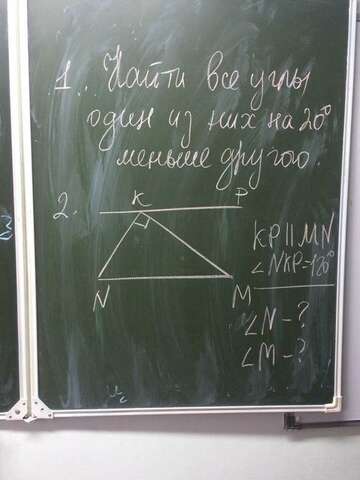 1. Найти все углы
один из них на 20°
меньше другого.
2.
K P
N M
KP || MN
∠NKP = 120°
∠N - ?
∠M - ?